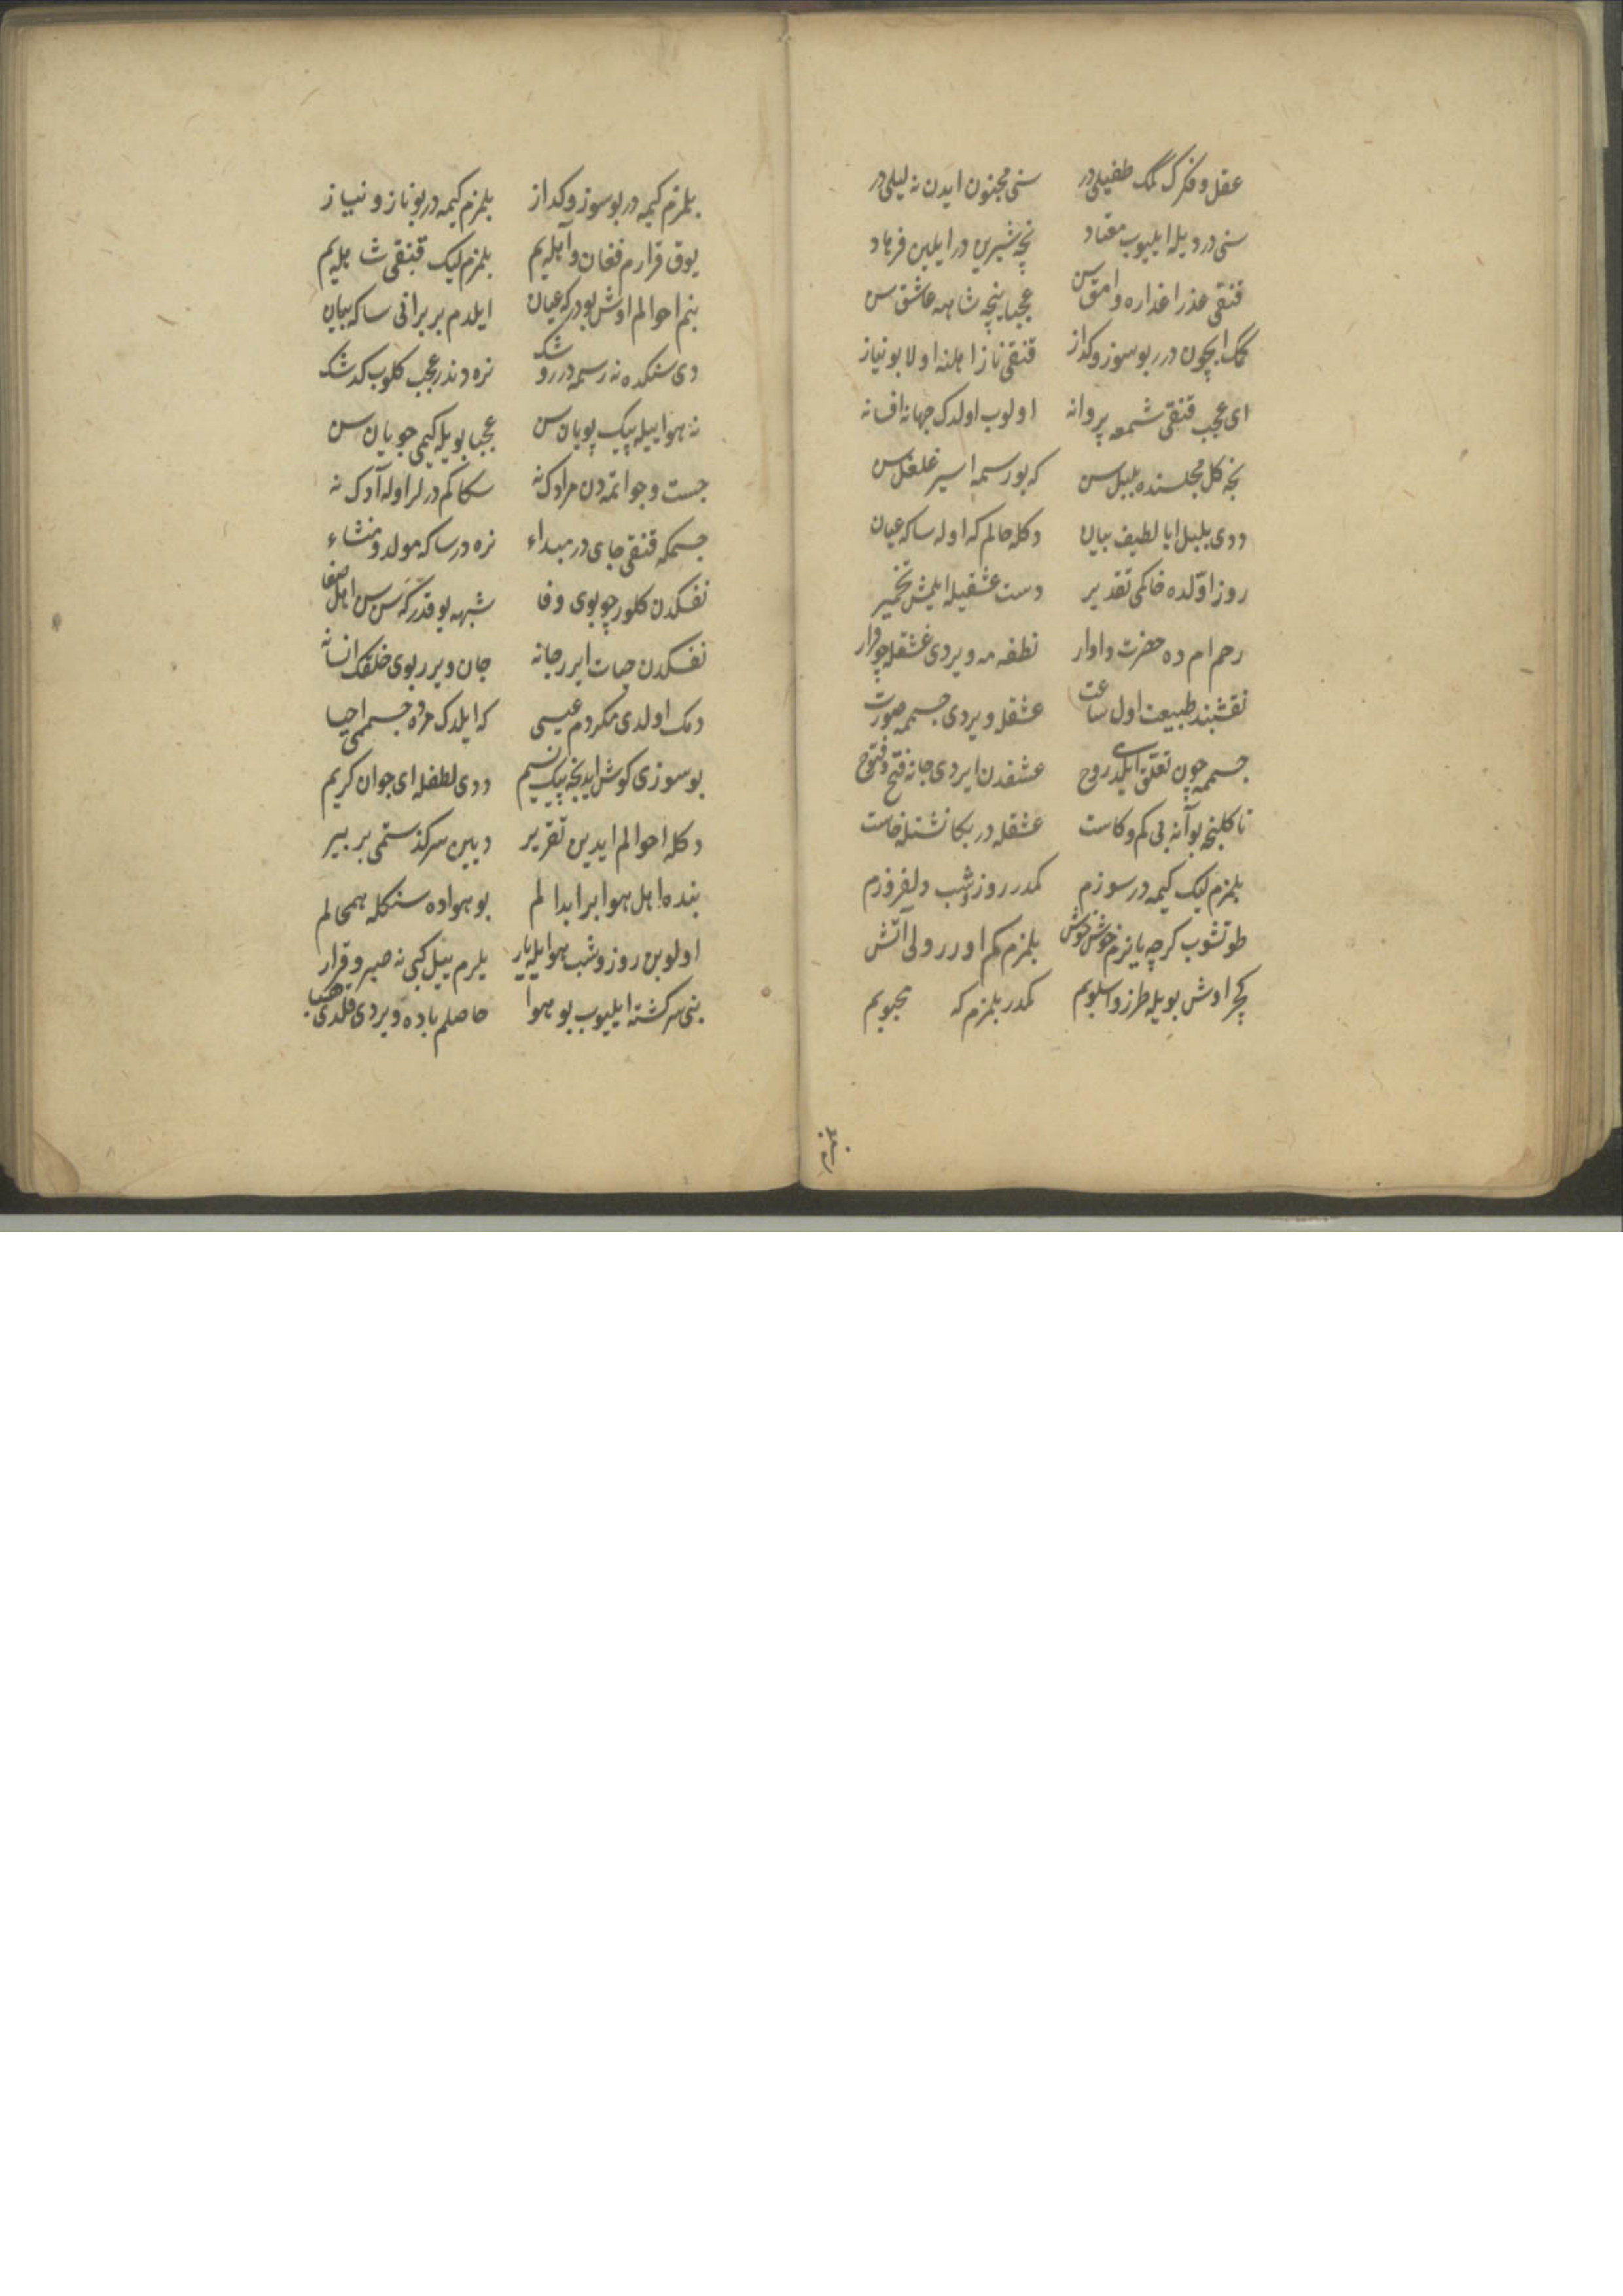 عقل و فکرک کمک طفیلی در سنی مجنون ایدن نه لیلی در
سنی درد یله ایلیوب معتاد نچه شیرین در ایلین فرهاد
قنقی عذرا عذاره وامق سن عجبا نیجه شاهه عاشق سن
کمک ایچون در بو سوز و کداز قنقی ناز اهلنه اولا بو نیاز
ای عجب قنقی شمعه پروانه اولوب اولدک جهانه افسانه
نجه کل مجلسنده بلبل سن که بو رسمه اسیر غلغل سن
ددی بلبل ایا لطیف بیان دکله حالم که اوله ساکه عیان
روز اولده خاکمی تقدیر دست عشقیله ایلمش تخمیر
رحم ام ده حضرت داوار نطفه مه ویردی عشقله چو قرار
نقشبند طبیعت اول ساعت عشقله ویردی جسممه صورت
جسممه چون تعلق ایلدی روح عشقدن ایردی جانه فتح و فتوح
تا کلنجه بو آنه بی کم و کاست عشقله در بکا نشست و خاست
بلمزم لیک کیمه در سوزم کمدر روز و شب دلفروزم
طوتشوب کرچه یانرم خوش خوش بلمزم کم اورر ولی آتش
کچر اوش بویله طرز و اسلوبم کمدر بلمزم که محبوبم
بلمزم کیمه در بو سوز و کداز بلمزم کیمه در بو ناز و نیاز
یوق قرارم فغان و آهله یم بلمزم لیک قنقی شاهله یم
بنم احوالم اوش بودر که عیان ایلدم بر برانی ساکه بیان
دی سنکده نه رسمه در روشک نره دندر عجب کلوب کدشک
نه هوا ییله پیک پویان سن عجبا بویله کیمی جویان سن
جست و جو اتمه دن مرادک نه سکا کم درلر اوله آدک نه
جسمکه قنقی جای در مبداء نره در ساکه مولد و منشاء
نفسکدن کلور چو بوی وفا شبهه یوقدر که سن سن اهل صفا
نفسکدن حیات ایرر جانه جان ویرر بوی خلقک انسانه
دمک اولدی مکر دم عیسی که ایلدک مرده جسممی احیا
بو سوزی کوش ایدنجه پیک نسیم ددی لطفله ای جوان کریم
دکله احوالم ایدین تقریر دیین سرکذشتمی بر بیر
بنده اهل هوا بر ابدالم بو هواده سنکله همحالم
اولوبن روز و شب هوا ایله یار یلرم ییل کبی نه صبر و قرار
بنی سرکشته ایلیوب بو هوا حاصلم باده ویردی قلدی هبا